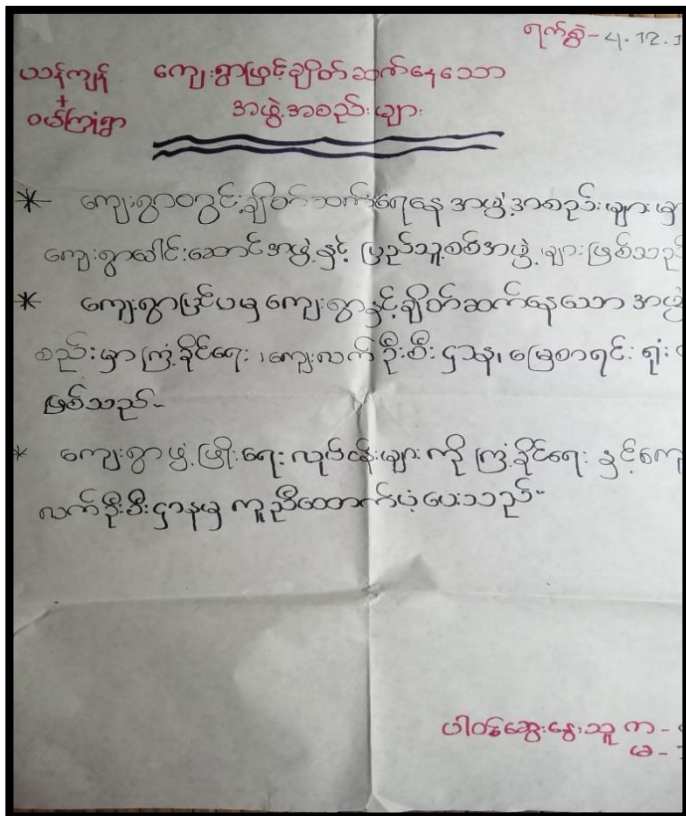 ရက်စွဲ - 4.12.1
ယာန်ကျန် ကျေးရွာဖြင့်ချိတ်ဆက်နေသော
+
ဝမ်ကြုံရွာ အဖွဲ့အစည်းများ
* ကျေးရွာတွင်းချိတ်ဆက်ရနေ အဖွဲ့အစည်းများမှ
ကျေးရွာခေါင်းဆောင်အဖွဲ့နှင့် ပြည်သူ့စစ်အဖွဲ့များဖြစ်သည်
* ကျေးရွာပြင်ပမှ ကျေးရွာနှင့်ချိတ်ဆက်နေသော အဖွဲ့
စည်းမှာ ကြံ့ခိုင်ရေး၊ ကျေးလက်ဦးစီးဌာန၊ မြေစာရင်းရုံး
ဖြစ်သည်-
* ကျေးရွာဖွံ့ဖြိုးရေးလုပ်ငန်းများကို ကြံ့ခိုင်ရေး နှင့်ကျေ
လက်ဦးစီးဌာနမှ ကူညီထောက်ပံ့ပေးသည်-
ပါဝင်ဆွေးနွေးသူ က -
မ -